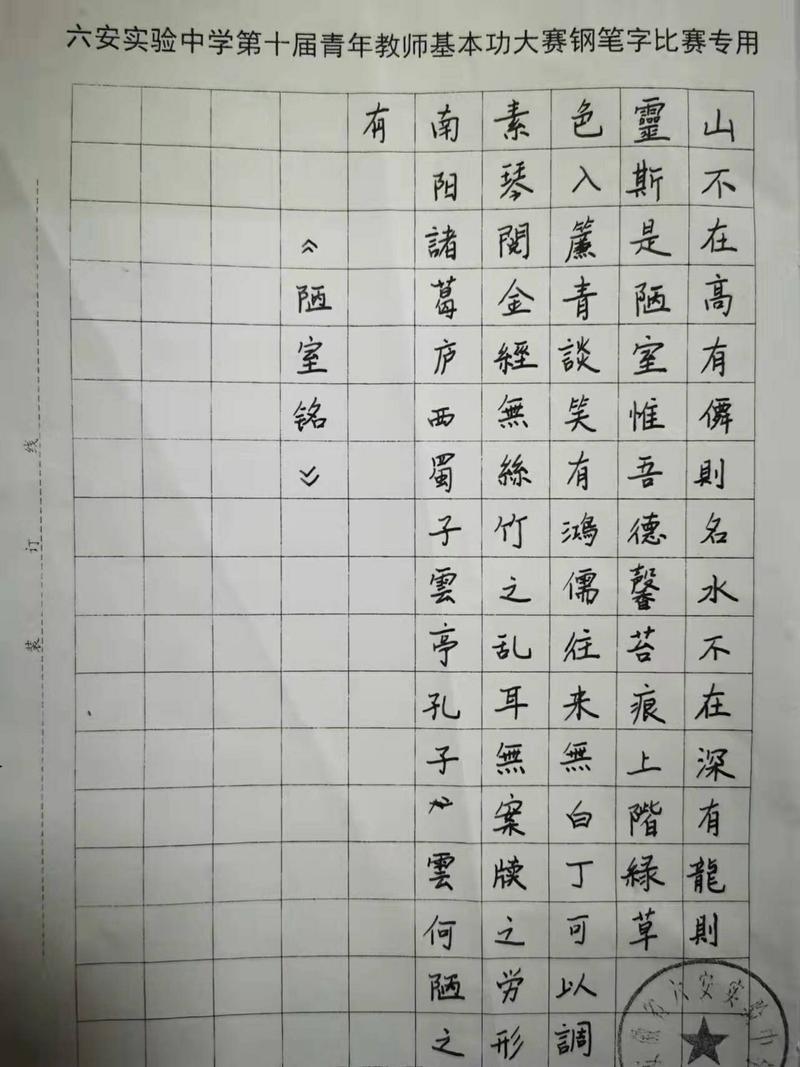 六安实验中学第十届青年教师基本功大赛钢笔字比赛专用
山不在高有僊則名水不在深有龍則
靈斯是陋室惟吾德馨苔痕上階緑草
色入簾青談笑有鴻儒往来無白丁可以調
素琴閲金經無絲竹之乱耳無案牍之労形
南阳諸葛庐西蜀子雲亭孔子雲何陋之
有
《陋室铭》
装订线
六安实验中